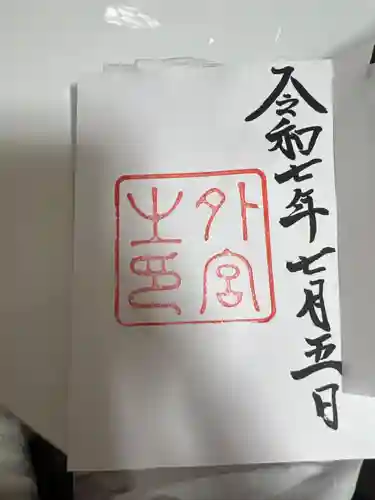 令和七年七月五日
外宮
之印